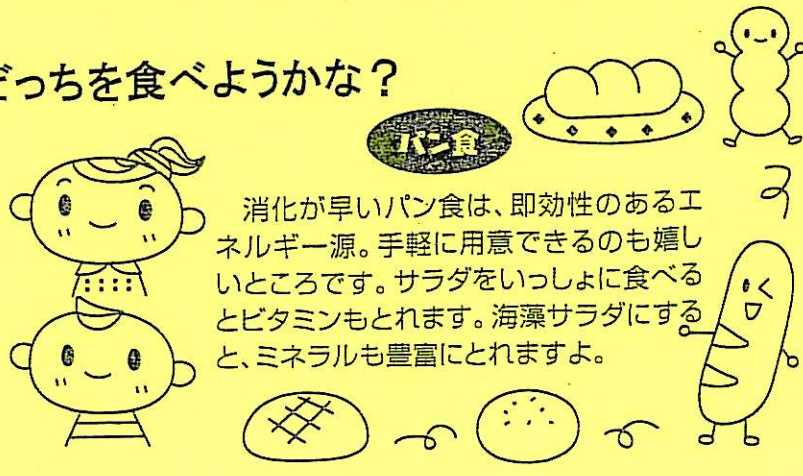 どっちを食べようかな？
パン食
消化が早いパン食は、即効性のあるエ
ネルギー源。手軽に用意できるのも嬉し
いところです。サラダをいっしょに食べる
とビタミンもとれます。海藻サラダにする
と、ミネラルも豊富にとれますよ。